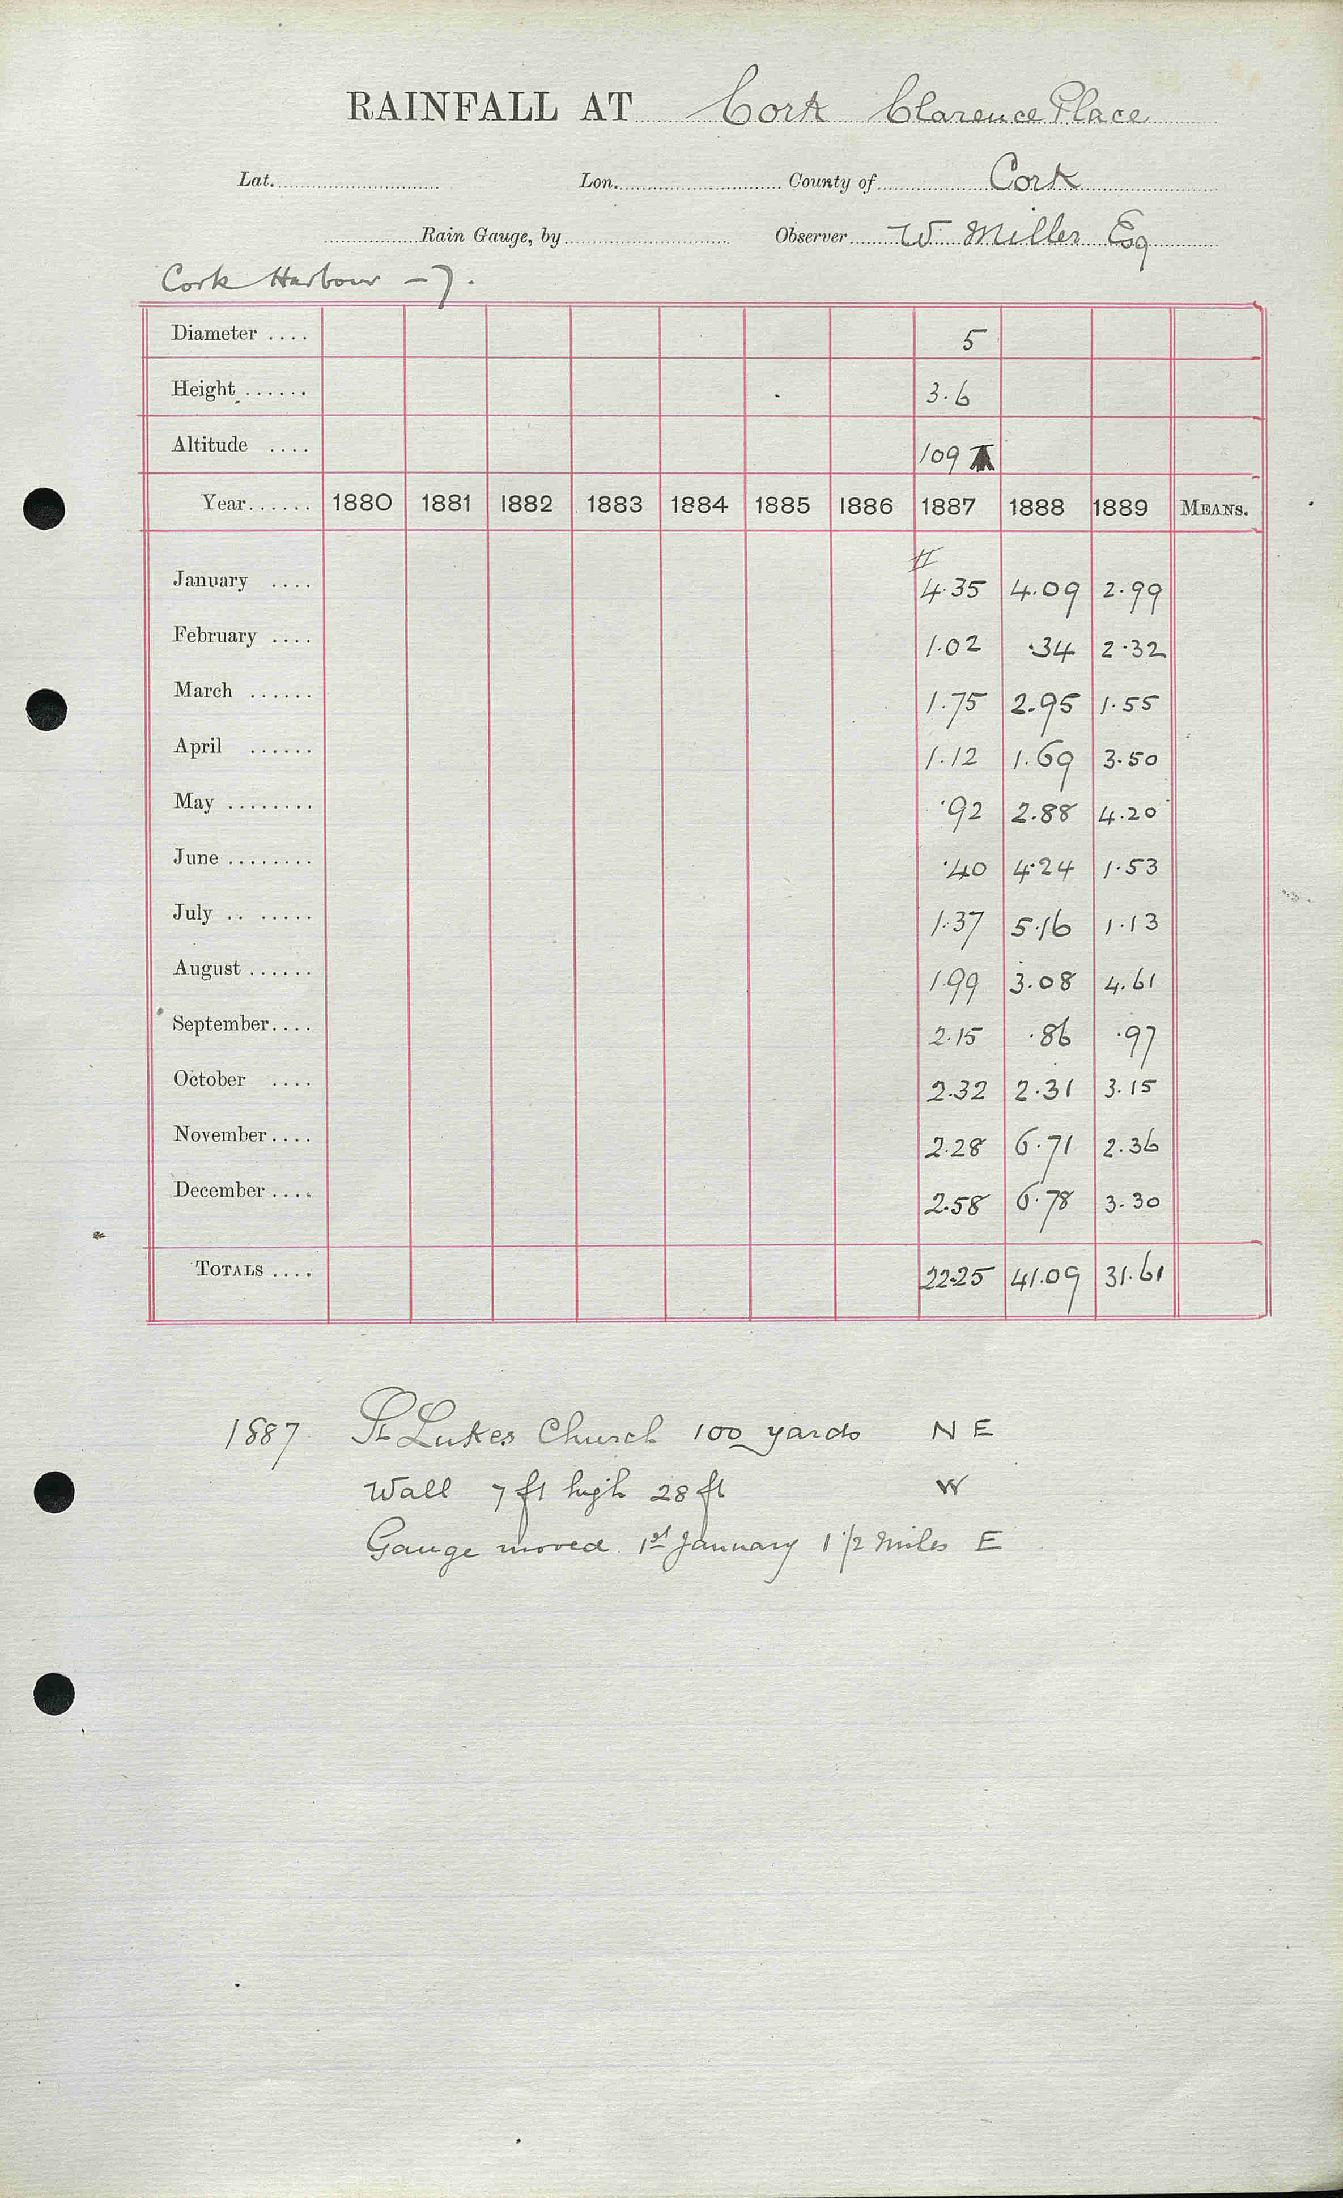 RAINFALL AT Cork Clarence Place
Lat. Lon. County of Cork
Rain Gauge, by Observer W Miller Esq
Cork Harbour - 7.
Diameter .... 5
Height ...... 3.6
Altitude .... 109
Year...... 1880 1881 1882 1883 1884 1885 1886 1887 1888 1889 MEANS.
January .... 4.35 4.09 2.99
February .... 1.02 .34 2.32
March ...... 1.75 2.95 1.55
April ...... 1.12 1.69 3.50
May ........ .92 2.88 4.20
June ........ .40 4.24 1.53
July .. ..... 1.37 5.16 1.13
August ...... 1.99 3.08 4.61
September.... 2.15 .86 .97
October .... 2.32 2.31 3.15
November.... 2.28 6.71 2.36
December.... 2.58 6.78 3.30
TOTALS .... 22.25 41.09 31.61
1887 St Lukes Church 100 yards N E
Wall 7 ft high 28 ft W
Gauge moved 1st January 1 1/2 miles E